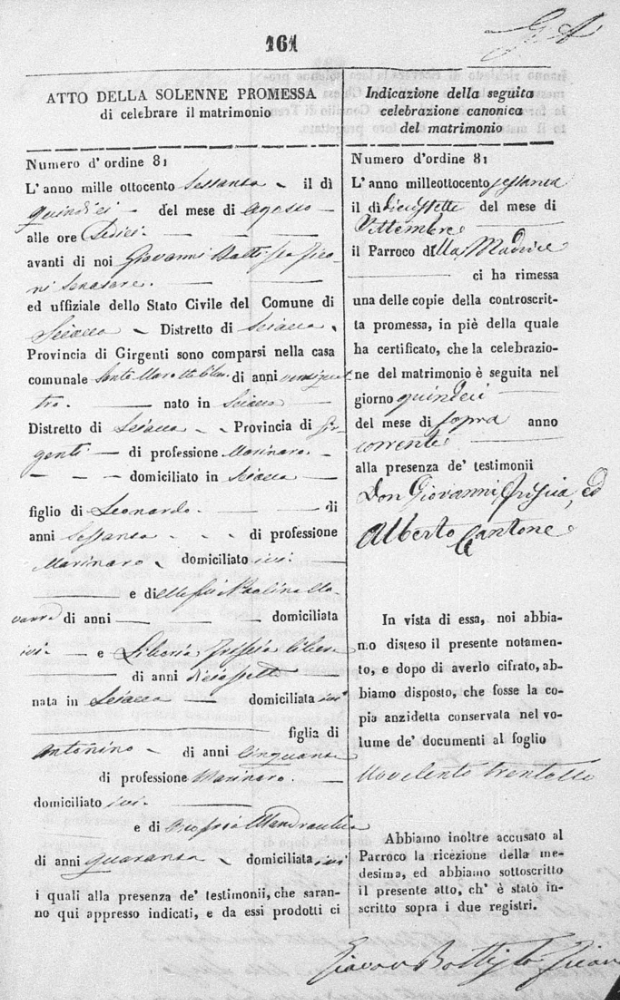 161
ATTO DELLA SOLENNE PROMESSA
di celebrare il matrimonio
Numero d'ordine 81
L'anno mille ottocento sessanta il dì
quindici del mese di Agosto
alle ore Sedici
avanti di noi Giovanni Battista
Senatore
ed uffiziale dello Stato Civile del Comune di
Sciacca Distretto di Sciacca
Provincia di Girgenti sono comparsi nella casa
comunale Sante di anni
tro. nato in Sciacca
Distretto di Sciacca Provincia di Gir-
genti di professione Marinaro
domiciliato in Sciacca
figlio di Leonardo di
anni Sessanta di professione
Marinaro domiciliato ivi
e di
di anni domiciliata
ivi e Liboria
di anni diciassette
nata in Sciacca domiciliata ivi
figlia di
Antonino di anni cinquanta
di professione Marinaro
domiciliato ivi
e di
di anni quaranta domiciliata ivi
i quali alla presenza de' testimonii, che saran-
no qui appresso indicati, e da essi prodotti ci
Indicazione della seguita
celebrazione canonica
del matrimonio
Numero d'ordine 81
L'anno milleottocento sessanta
il dì diciassette del mese di
Settembre
il Parroco della Madrice
ci ha rimessa
una delle copie della controscrit-
ta promessa, in piè della quale
ha certificato, che la celebrazio-
ne del matrimonio è seguita nel
giorno quindeci
del mese di sopra anno
corrente
alla presenza de' testimonii
Don Giovanni Friscia, ed
Alberto Cantone
In vista di essa, noi abbia-
mo disteso il presente notamen-
to, e dopo di averlo cifrato, ab-
biamo disposto, che fosse la co-
pia anzidetta conservata nel vo-
lume de' documenti al foglio
Novecento trentotto
Abbiamo inoltre accusato al
Parroco la ricezione della me-
desima, ed abbiamo sottoscritto
il presente atto, ch' è stato in-
scritto sopra i due registri.
Giovan Battista